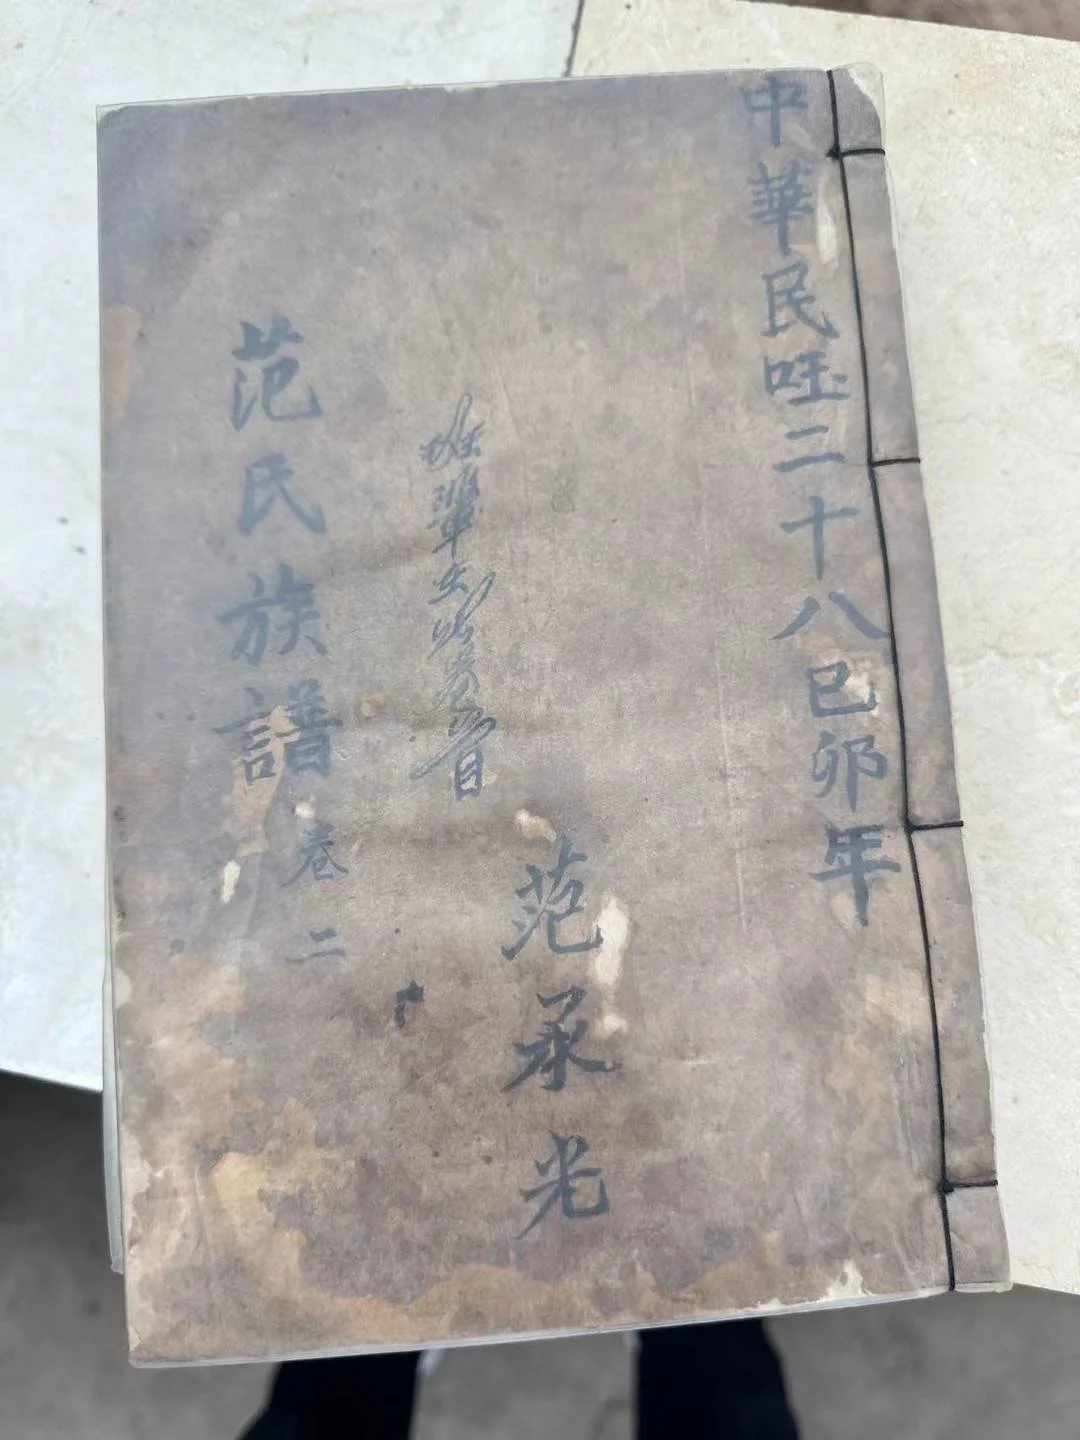 中華民国二十八己卯年
范承光
班輩
范氏族譜 卷二